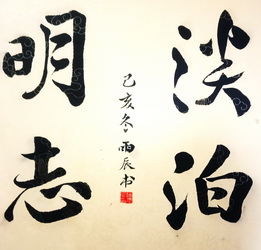 淡泊
明志
己亥冬雨辰书